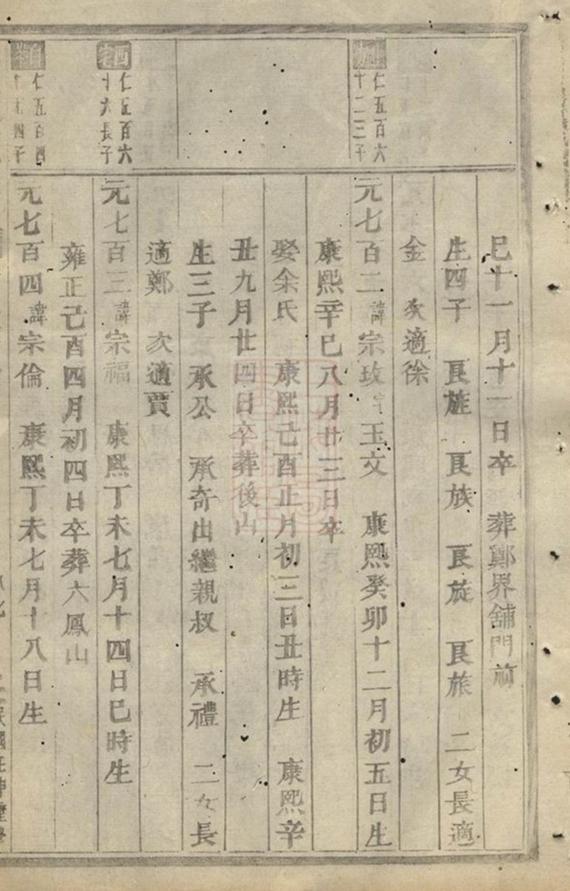 仁五百六
十二三子
巳十一月十一日卒 葬鄭界舖門前
生四子 民旌 民族 民旋 民旅 二女長適
金 次適徐
元七百二諱宗玫字玉文 康熙癸卯十二月初五日生
康熙辛巳八月廿三日卒
娶余氏 康熙己酉正月初三日丑時生 康熙辛
丑九月廿四日卒葬後山
生三子 承公 承奇出繼親叔 承禮 二女長
適鄭 次適賈
仁五百六
十六長子
元七百三諱宗福 康熙丁未七月十四日巳時生
雍正己酉四月初四日卒葬六鳳山
仁五百四
子
元七百四諱宗倫 康熙丁未七月十八日生